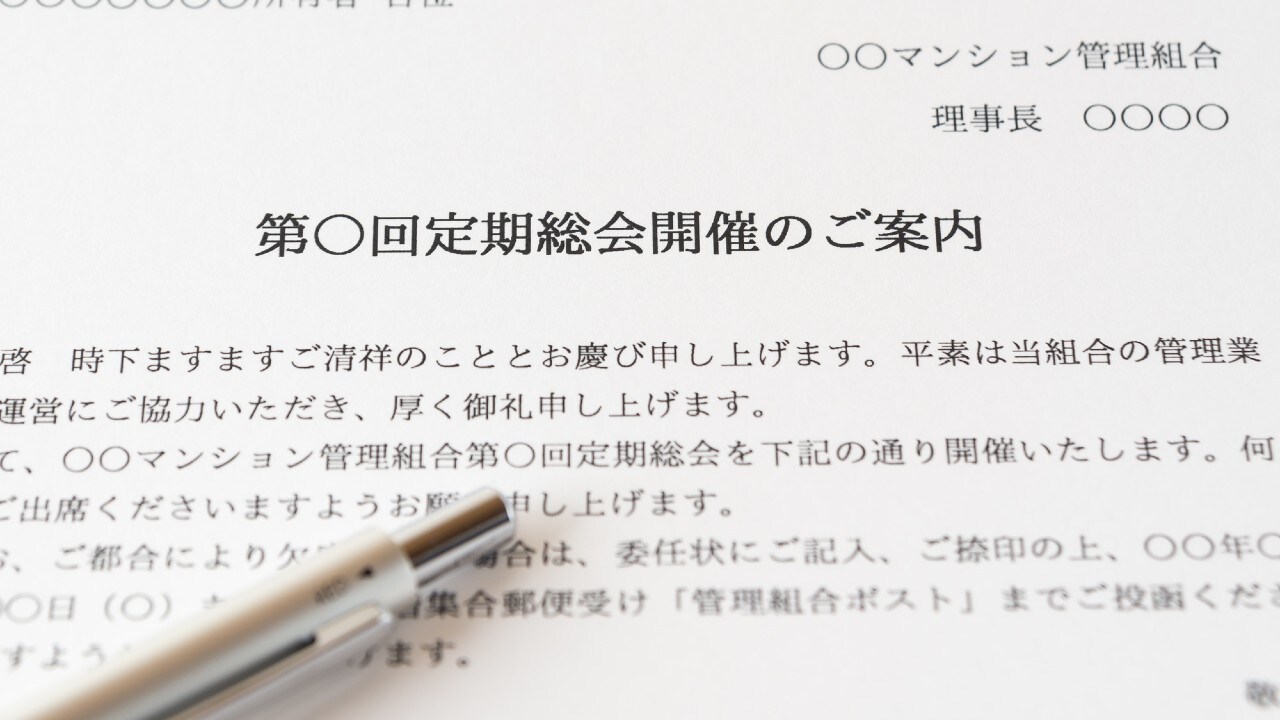 〇〇〇〇〇〇〇所有者 各位
〇〇マンション管理組合
理事長 〇〇〇〇
第〇回定期総会開催のご案内
啓 時下ますますご清祥のこととお慶び申し上げます。平素は当組合の管理業
運営にご協力いただき、厚く御礼申し上げます。
て、〇〇マンション管理組合第〇回定期総会を下記の通り開催いたします。何
ご出席くださいますようお願 申し上げます。
お、ご都合により欠 場合は、委任状にご記入、ご捺印の上、〇〇年〇
〇〇日（〇） 集合郵便受け「管理組合ポスト」までご投函くださ
すよう げます。
敬